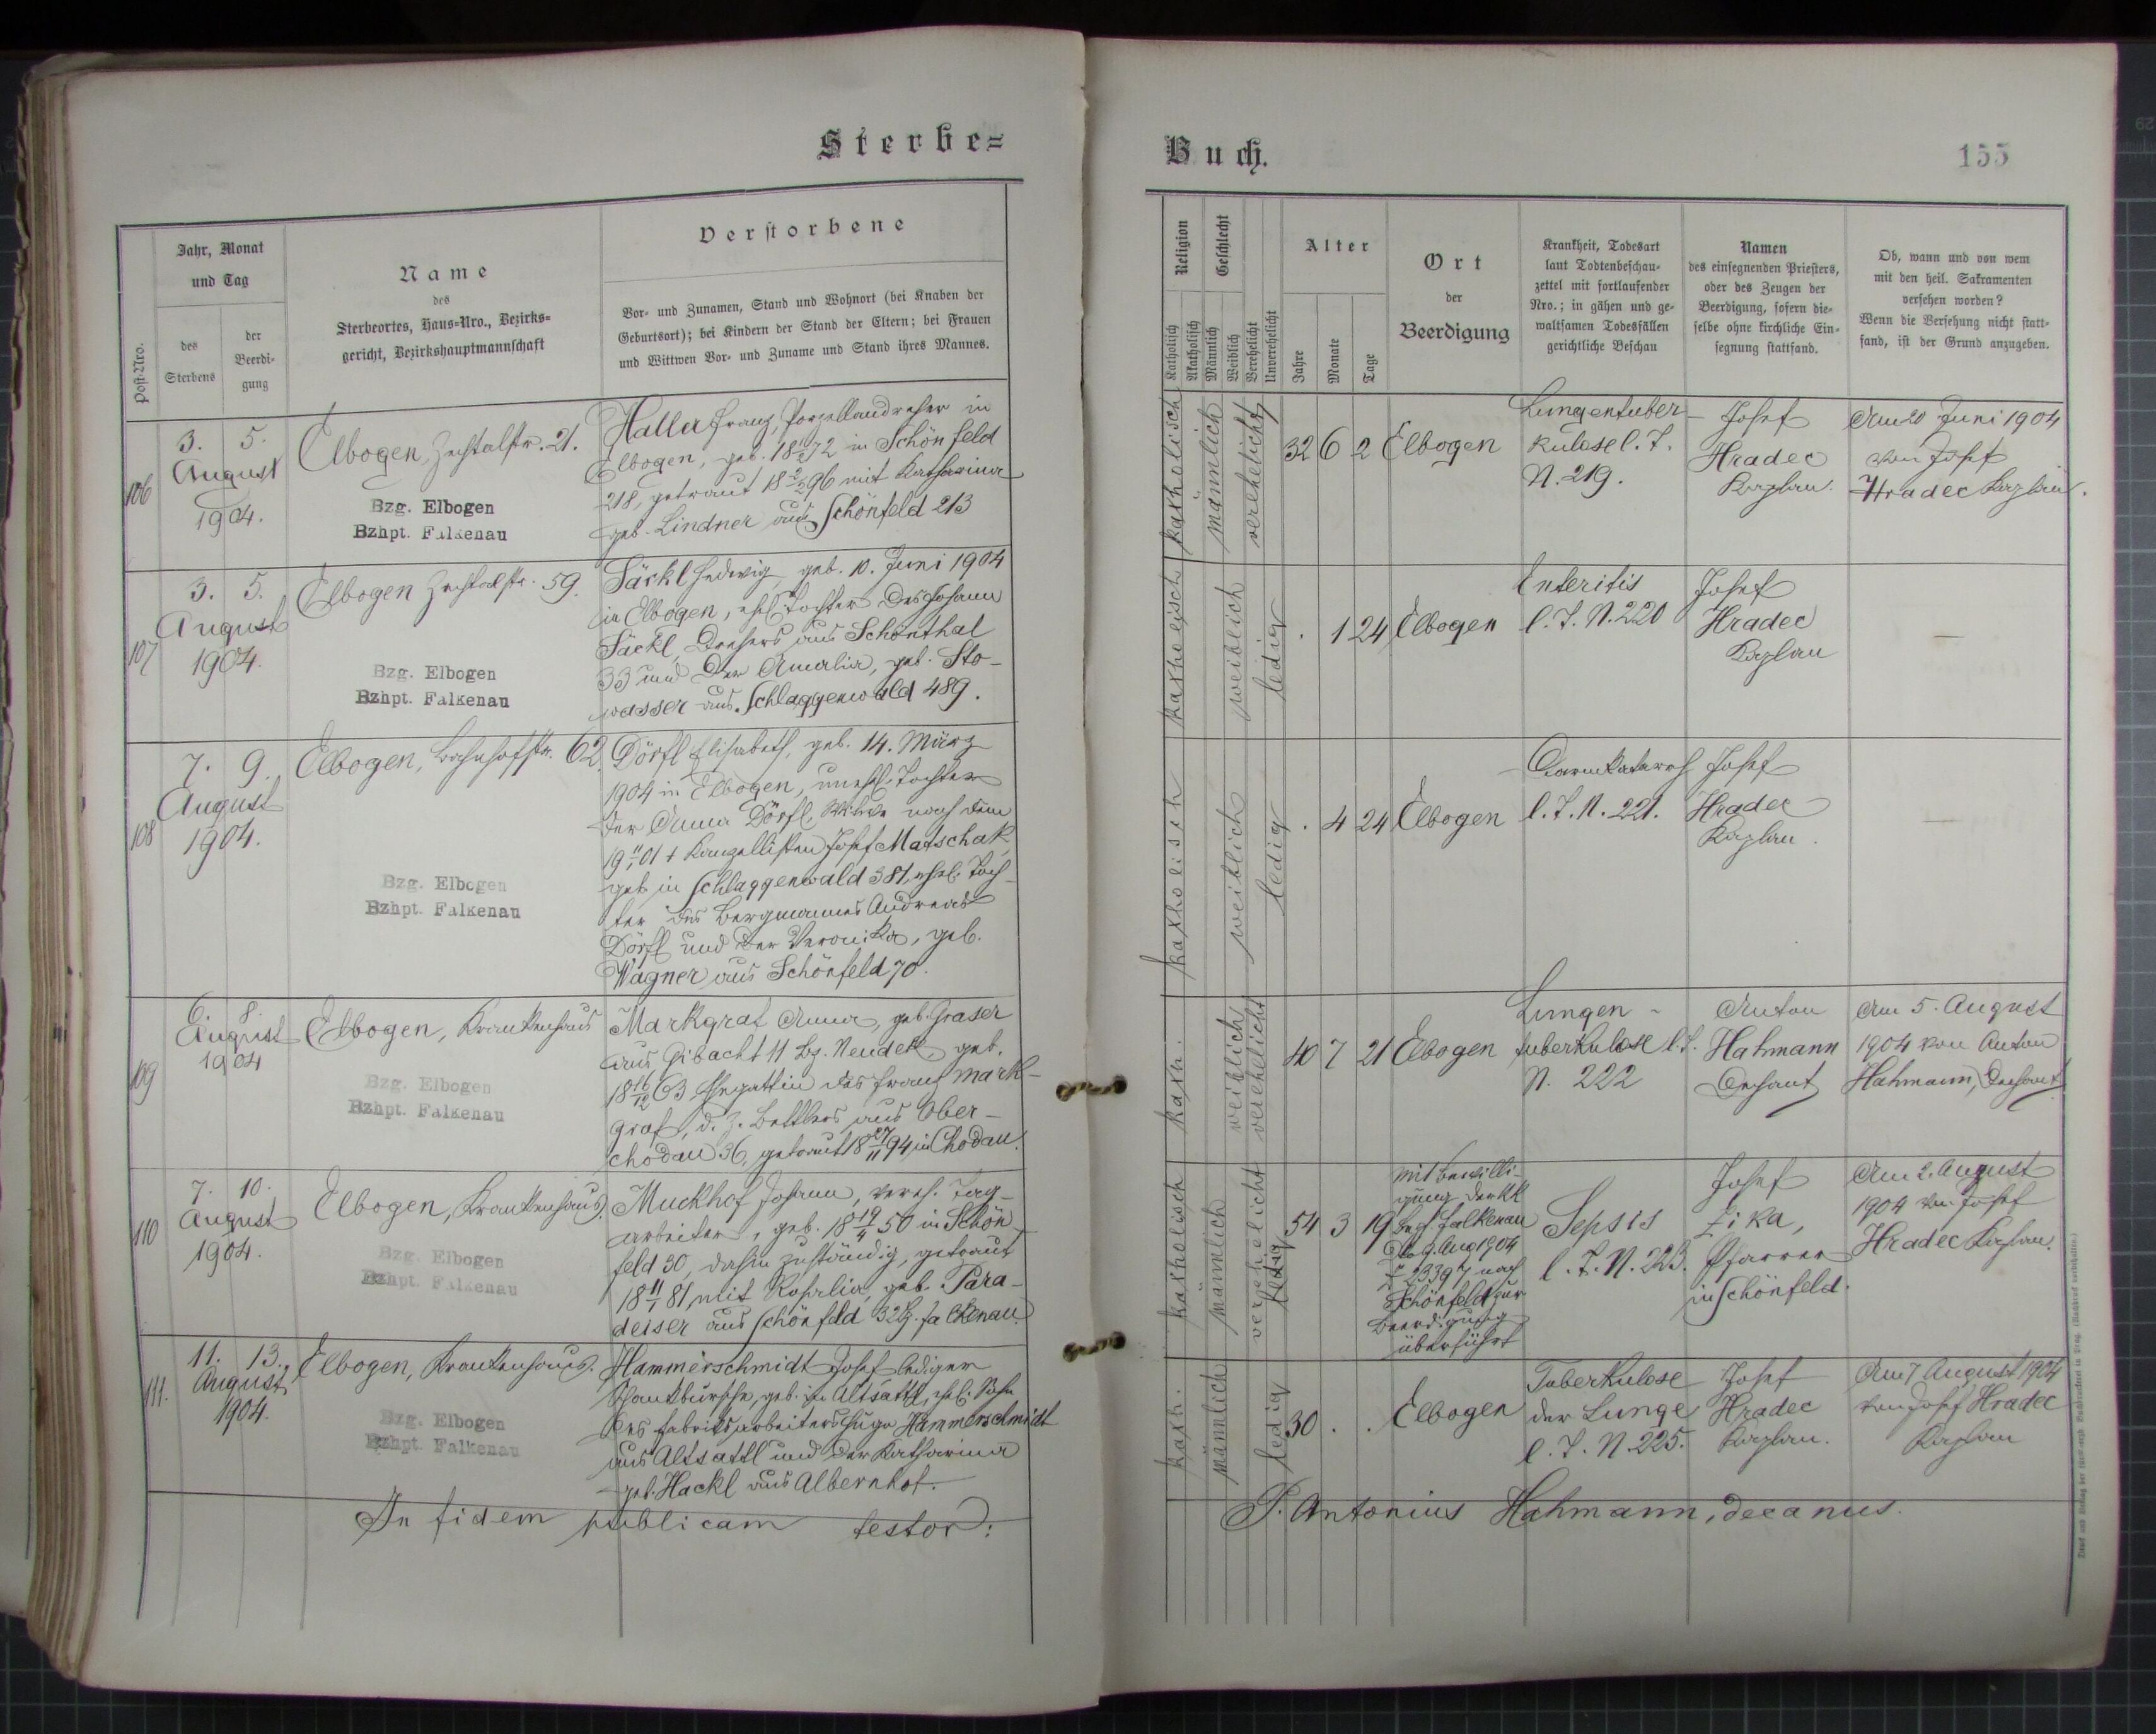 Sterbe=
Buch.
155
Post-Nro.
Jahr, Monat
und Tag
des
Sterbens
der
Beerdi-
gung
Name
des
Sterbeortes, Haus-Nro., Bezirks-
gericht, Bezirkshauptmannschaft
Verstorbene
Vor- und Zunamen, Stand und Wohnort (bei Knaben der
Geburtsort); bei Kindern der Stand der Eltern; bei Frauen
und Wittwen Vor- und Zuname und Stand ihres Mannes.
Religion
Katholisch
Akatholisch
Geschlecht
Männlich
Weiblich
Verehelicht
Unverehelicht
Alter
Jahre
Monate
Tage
Ort
der
Beerdigung
Krankheit, Todesart
laut Todtenbeschau-
zettel mit fortlaufender
Nro.; in gähen und ge-
waltsamen Todesfällen
gerichtliche Beschau
Namen
des einsegnenden Priesters,
oder des Zeugen der
Beerdigung, sofern die-
selbe ohne kirchliche Ein-
segnung stattfand.
Ob, wann und von wem
mit den heil. Sakramenten
versehen worden?
Wenn die Versehung nicht statt-
fand, ist der Grund anzugeben.
106
3. 5.
August
1904.
Elbogen, Zechtalstr. 21.
Bzg. Elbogen
Bzhpt. Falkenau
Haller Franz, Porzellandreher in
Elbogen, geb. 18 72 in Schönfeld
218, getraut 18 96 mit Katharina
geb. Lindner aus Schönfeld 213
katholisch
männlich
verehelicht
32 6 2
Elbogen
Lungentuber-
kulose l. T.
N. 219.
Josef
Hradec
Kaplan.
Am 20 Juni 1904
von Josef
Hradec Kaplan.
107
3. 5.
August
1904.
Elbogen Zechtalstr. 59.
Bzg. Elbogen
Bzhpt. Falkenau
Säckl Hedwig, geb. 10. Juni 1904
in Elbogen, ehel. Tochter des Johann
Säckl, Drehers aus Schönthal
33 und der Amalia, geb. Sto-
wasser aus Schlaggenwald 489.
katholisch
weiblich
ledig
. 1 24
Elbogen
Enteritis
l. T. N. 220
Josef
Hradec
Kaplan
—
108
7. 9.
August
1904.
Elbogen, Bahnhofstr. 62.
Bzg. Elbogen
Bzhpt. Falkenau
Dörfl Elisabeth, geb. 14. März
1904 in Elbogen, unehl. Tochter
der Anna Dörfl, Witwe nach dem
19 01 † Kanzellisten Josef Matschak,
geb. in Schlaggenwald 381, ehel. Toch-
ter des Bergmannes Andreas
Dörfl und der Veronika, geb.
Wagner aus Schönfeld 70.
katholisch
weiblich
ledig
. 4 24
Elbogen
Darmkatarrh
l. T. N. 221.
Josef
Hradec
Kaplan.
—
109
6. 8.
August
1904
Elbogen, Krankenhaus
Bzg. Elbogen
Bzhpt. Falkenau
Markgraf Anna, geb. Graser
aus Gibacht 11 Bz. Neudek, geb.
18 16/12 63 Ehegattin des Franz Mark-
graf, d. Z. Bettlers aus Ober-
chodau 36, getraut 18 27/11 94 in Chodau.
kath.
weiblich
verehelicht
40 7 21
Elbogen
Lungen-
tuberkulose l. T.
N. 222
Anton
Hahmann
Dechant
Am 5. August
1904 von Anton
Hahmann, Dechant
110
7. 10.
August
1904.
Elbogen, Krankenhaus.
Bzg. Elbogen
Bzhpt. Falkenau
Muckhof Johann, vereh. Tag-
arbeiter, geb. 18 19/4 50 in Schön-
feld 30, dahin zuständig, getraut
18 11/1 81 mit Rosalia, geb. Para-
deiser aus Schönfeld 32 Bz. Falkenau.
katholisch
männlich
verehelicht
ledig
54 3 19
mit Bewilli-
gung der kk
Bzh. Falkenau
dto 9. Aug 1904
Z 23397 nach
Schönfeld zur
Beerdigung
überführt
Sepsis
l. T. N. 223.
Josef
Zika,
Pfarrer
in Schönfeld.
Am 2. August
1904 von Josef
Hradec Kaplan.
111.
11. 13.
August
1904.
Elbogen, Krankenhaus.
Bzg. Elbogen
Bzhpt. Falkenau
Hammerschmidt Josef lediger
Schankbursche, geb. in Altsattl, ehel. Sohn
des Fabriksarbeiters Hugo Hammerschmidt
aus Altsattl und der Katharina
geb. Hackl aus Albernhof.
kath.
männlich
ledig
30 . .
Elbogen
Tuberkulose
der Lunge
l. T. N. 225.
Josef
Hradec
Kaplan.
Am 7 August 1904
von Josef Hradec
Kaplan
In fidem publicam testor:
P. Antonius Hahmann, decanus.